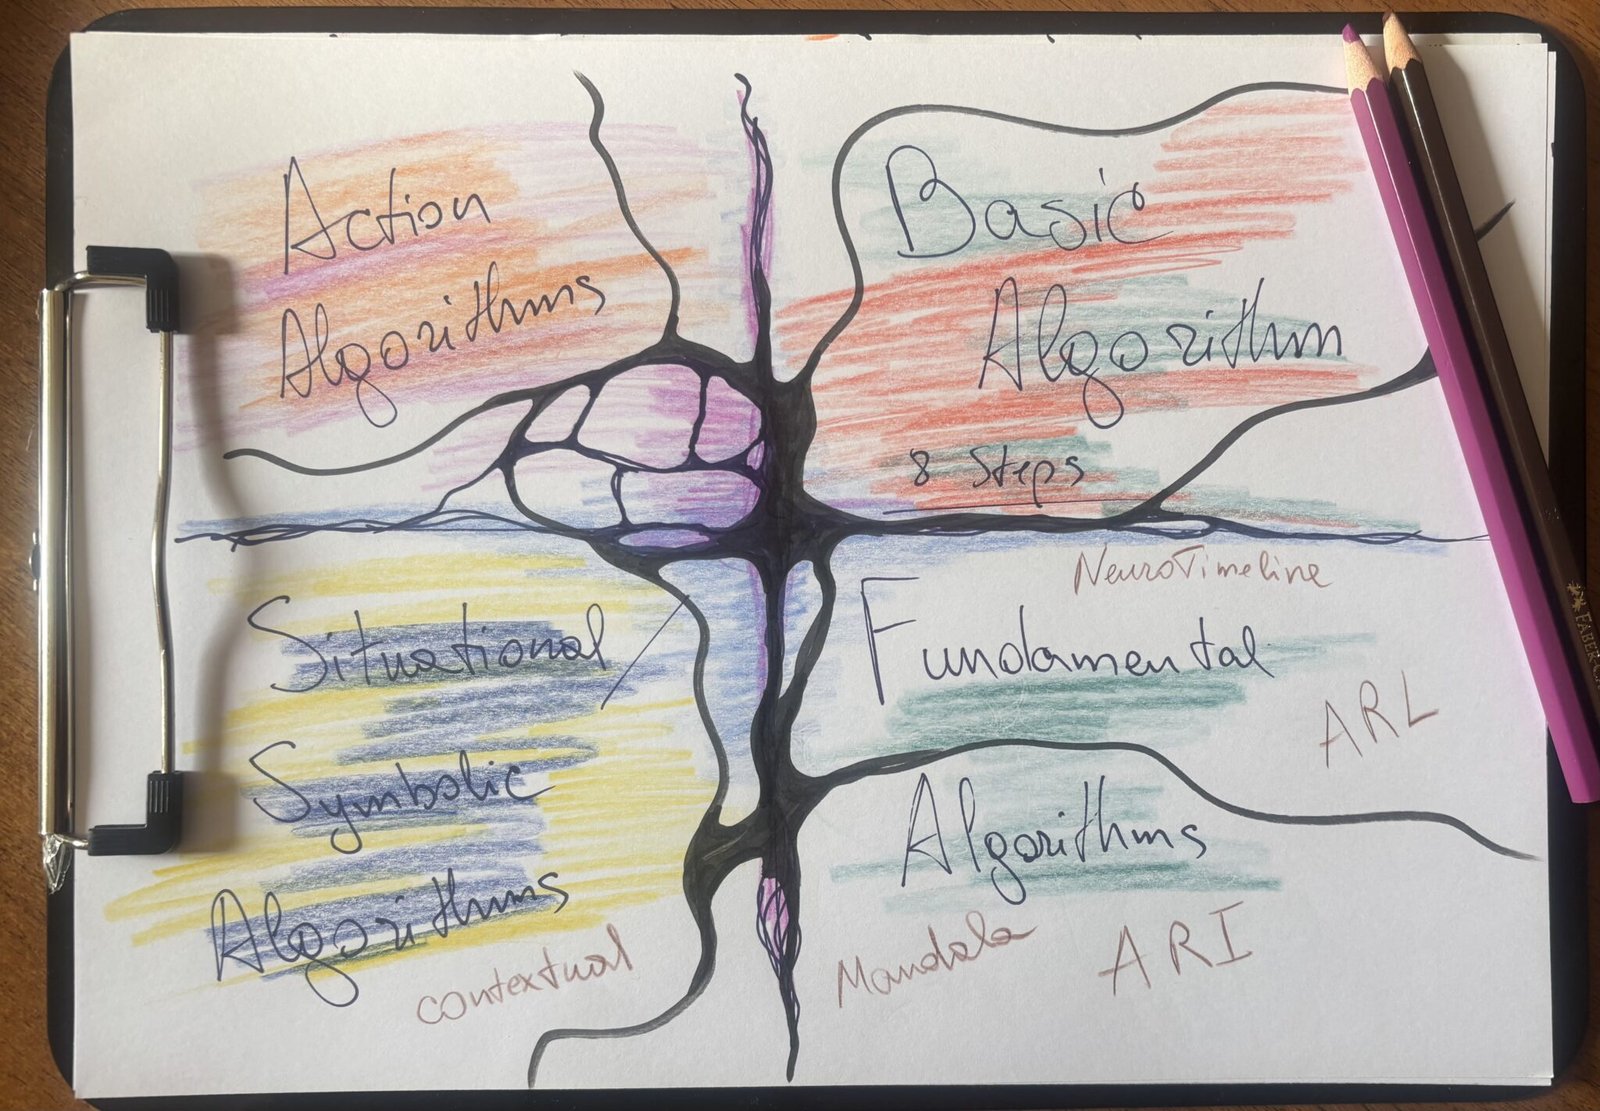 Action
Algorithms
Basic
Algorithm
8 Steps
Situational
Symbolic
Algorithms
contextual
NeuroTimeline
Fundamental
ARL
Algorithms
Mandala
ARI